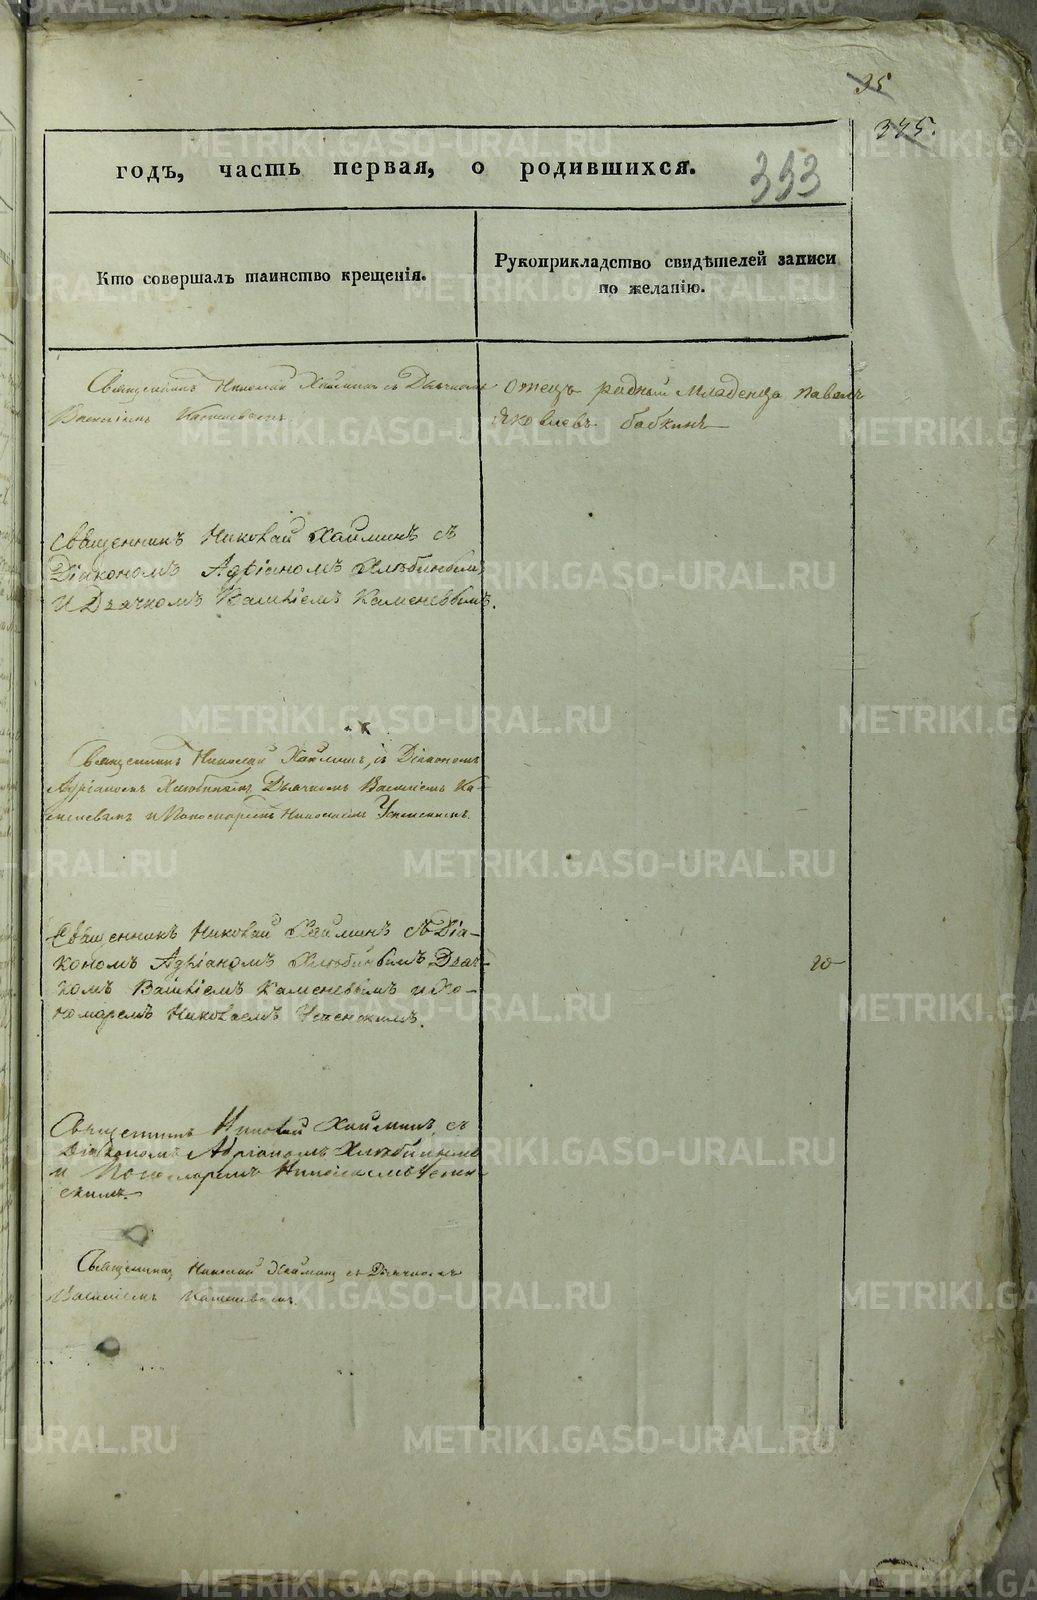 35
375.
годъ, часть первая, о родившихся.
393
Кто совершалъ таинство крещенія.
Рукоприкладство свидѣтелей записи
по желанію.
Священникъ Николай Хайминъ съ Дьячкомъ
Василіемъ Каменевымъ.
Отецъ родный младенца Павелъ
Яковлевъ бабкинъ
Священникъ Николай Хайминъ съ
Діакономъ Адріаномъ Хлѣбинымъ
И Дьячкомъ Василіемъ Каменевымъ.
Священникъ Николай Хайминъ, съ Діакономъ
Адріаномъ Дьячкомъ Василіемъ Ка-
меневымъ и Пономаремъ Николаемъ Успенскимъ.
Священникъ Николай Хайминъ съ Діа-
кономъ Адріаномъ Хлѣбинымъ Дьяч-
комъ Василіемъ Каменевымъ и По-
номаремъ Николаемъ Успенскимъ.
Священникъ Николай Хайминъ, съ
Діакономъ Адріаномъ
и Пономаремъ Николаемъ Успен-
скимъ.
Священникъ Николай Хайминъ съ Дьячкомъ
Василіемъ Каменевымъ.
METRIKI.GASO-URAL.RU